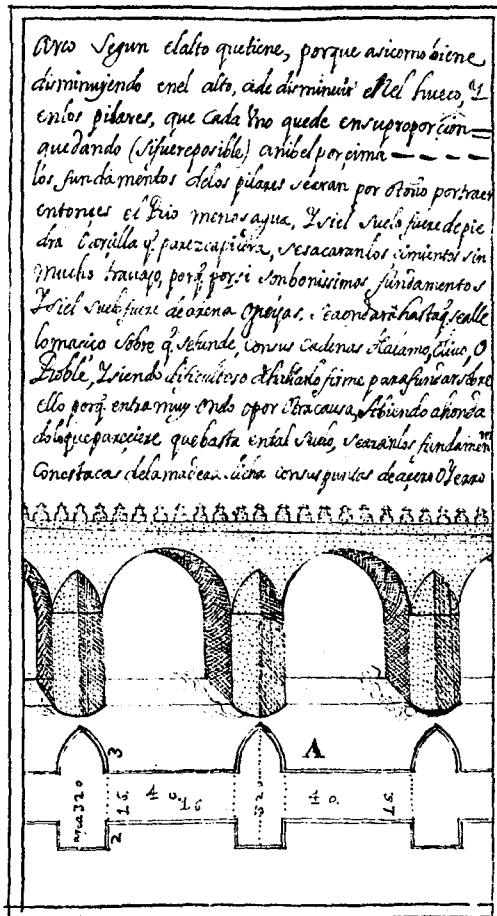 Arco Segun el alto que tiene, porque asi como biene
disminuyendo en el alto, a de disminuir en el hueco, Y
en los pilares, que cada Uno quede en su proporcion =
quedando (si fuere posible) a nibel por çima — — — —
los fundamentos de los pilares searan por otoño por traer
entonçes el Rio menos agua, Y si el Suelo fuere de pie
dra o arçilla q̃ parezca piçarra, se sacaran los çimientos sin
mucho travajo, porq̃ por si son bonissimos fundamentos
Y si el Suelo fuere de arena o guijas, se aondara hasta q̃ se alle
lo masiço Sobre q̃ se funde, con sus Cadenas de alamo, olivo, o
Roble, Y siendo dificultoso de hallarlo firme para fundar sobre
ello porq̃ entra muy ondo o por otra causa, abiendo ahonda
do lo que pareçiere que basta en tal Suelo, se aran los fundamen
Con estacas de la madera dicha con sus puntas de açero O Yerro
A
3
320
16
40
16
320
40.
16.
2